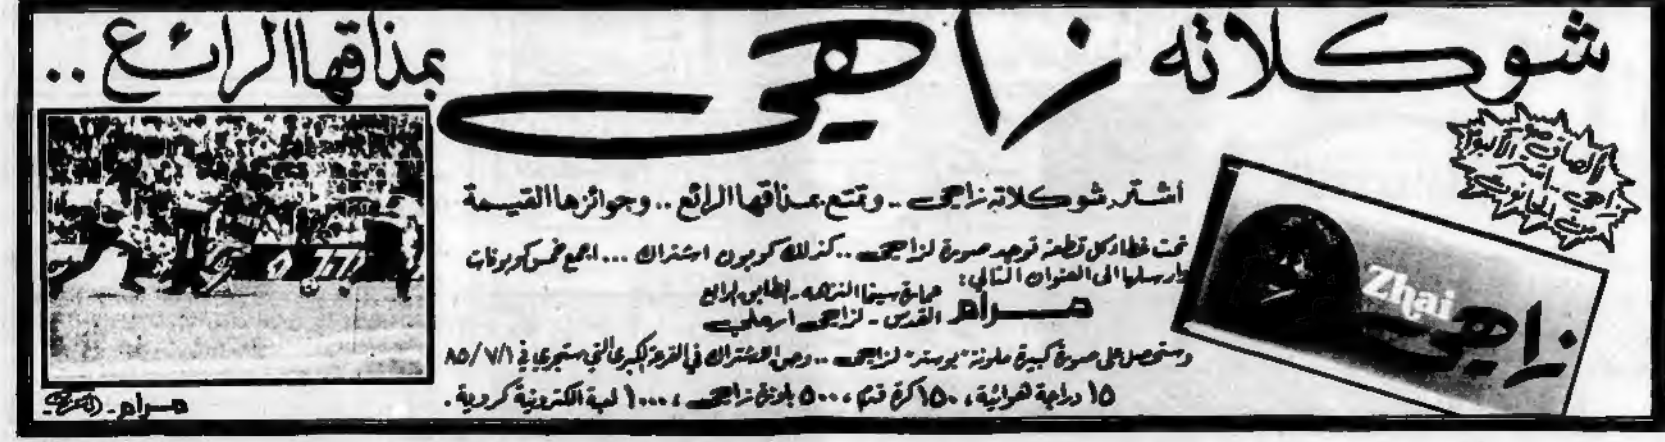 شوكلاته زاهي بمذاقها الرائع ..
اشتر شوكلاته زاهي .. وتمتع بمذاقها الرائع .. وجوائزها القيمة
تحت غطاء كل قطعة توجد صورة لزاهي .. كذلك كوبون اشتراك ... اجمع خمس كوبونات
وارسلها الى العنوان التالي: عمارة سينما النزهه - الطابق الرابع
مرام القدس - لزاهي
وستحصل على صورة كبيرة ملونة "بوستر" لزاهي .. وحق الاشتراك في القرعة الكبرى التي ستجري في ٨٥/٧/١
١٥ دراجة هوائية ، ١٥٠ كرة قدم ، ٥٠٠ بلوزة زاهي ، ١٠٠٠ لعبة الكترونية كروية .
الألبوم
زاهي
من
Zhai
زاهي
مرام - القدس